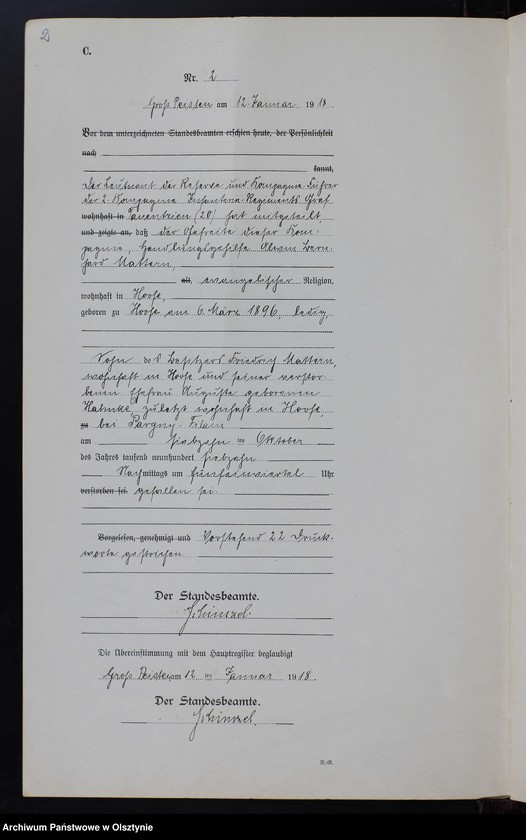 2
C.
Nr. 2
Groß Peisten am 12. Januar 1918.
Vor dem unterzeichneten Standesbeamten erschien heute, der Persönlichkeit
nach
kannt,
Der Leutnant der Reserve und Kompagnie-Führer
der 2. Kompagnie Infanterie-Regiments Graf
wohnhaft in Dönhoff (20) hat mitgeteilt,
und zeigte an, daß der Gefreite dieser Kom-
pagnie, Handlungsgehilfe Bern-
hard Mattern,
alt, evangelischer Religion,
wohnhaft in Hoofe,
geboren zu Hoofe am 6. März 1896, ledig,
Sohn des Besitzers Friedrich Mattern,
wohnhaft in Hoofe und seiner verstor-
benen Ehefrau Auguste geborenen
Hahnke, zuletzt wohnhaft in Hoofe,
zu bei Pargny-Filain
am siebzehn ten Oktober
des Jahres tausend neunhundert siebzehn
Nachmittags um fünfeinviertel Uhr
verstorben sei. gefallen sei.
Vorgelesen, genehmigt und Vorstehend 22 Druck-
worte gestrichen.
Der Standesbeamte.
Schinzel.
Die Übereinstimmung mit dem Hauptregister beglaubigt
Groß Peisten, am 12 ten Januar 1918.
Der Standesbeamte.
Schinzel.
Archiwum Państwowe w Olsztynie